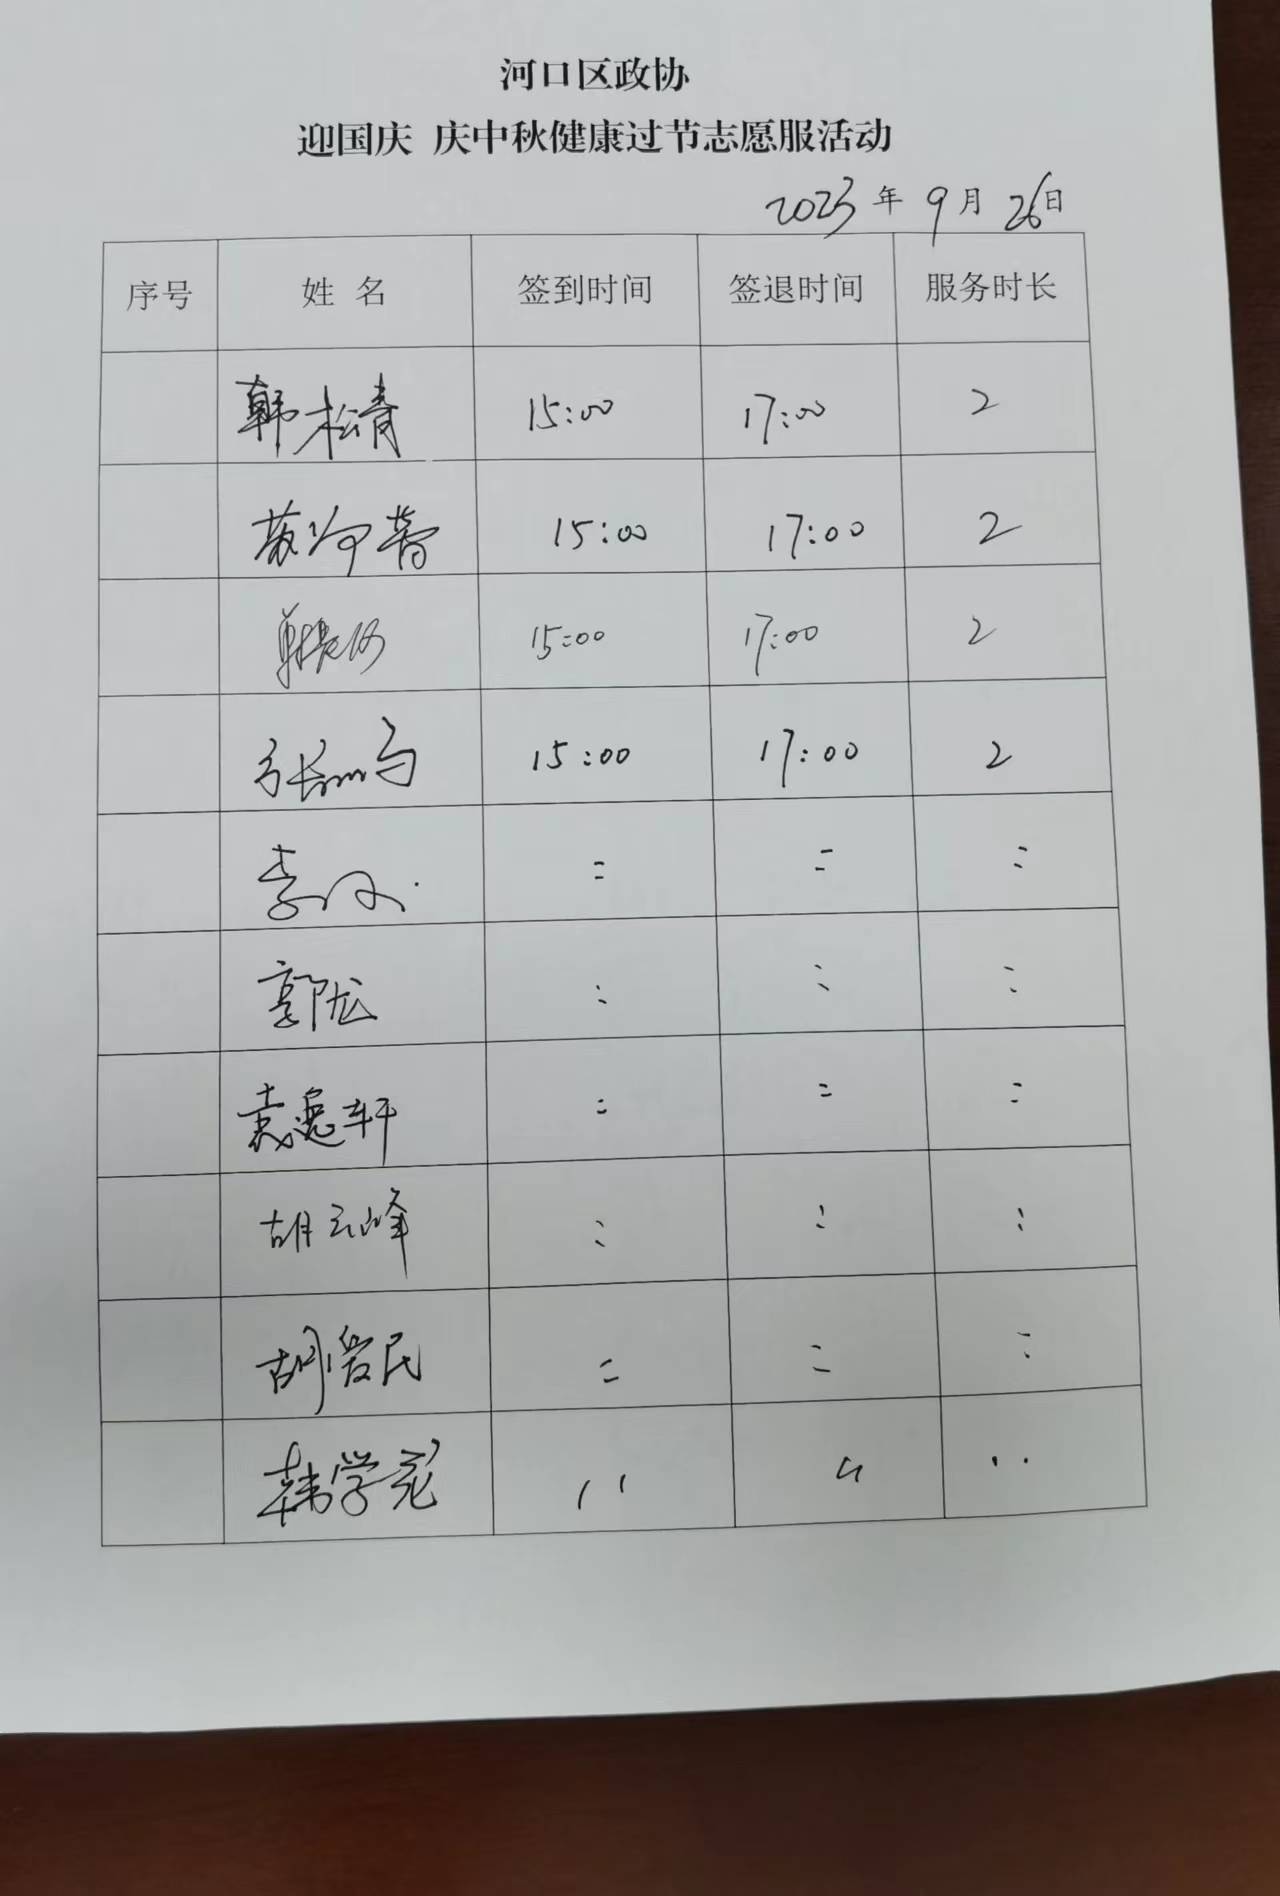 河口区政协
迎国庆 庆中秋健康过节志愿服活动
2023年9月26日
序号 姓名 签到时间 签退时间 服务时长
韩松青 15:00 17:00 2
15:00 17:00 2
15:00 17:00 2
15:00 17:00 2
李
郭龙
袁 轩
胡云峰
胡爱民
韩学